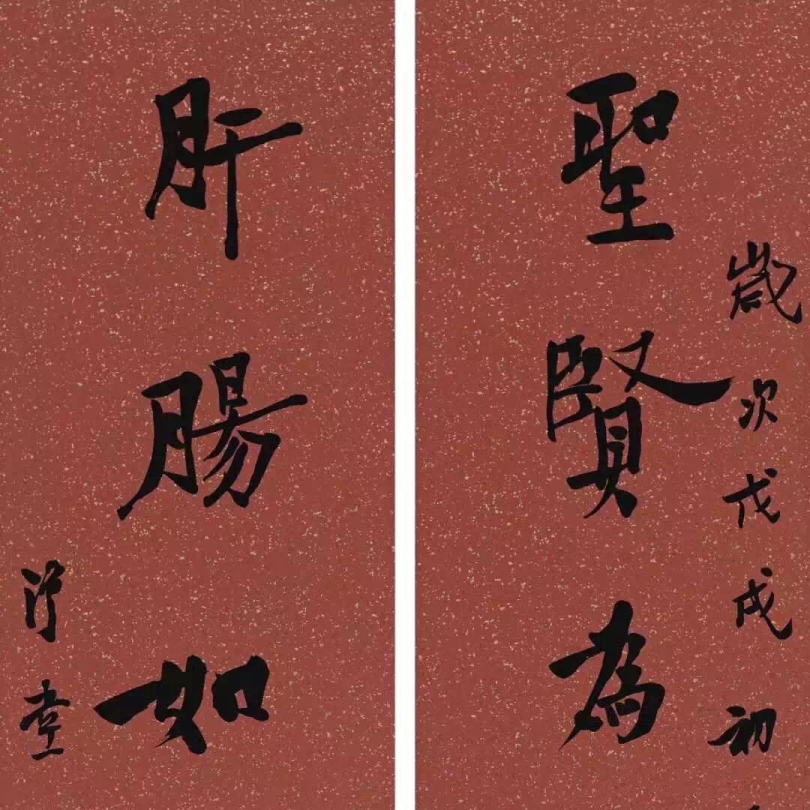 聖賢為
歲次戊戌初
肝腸如